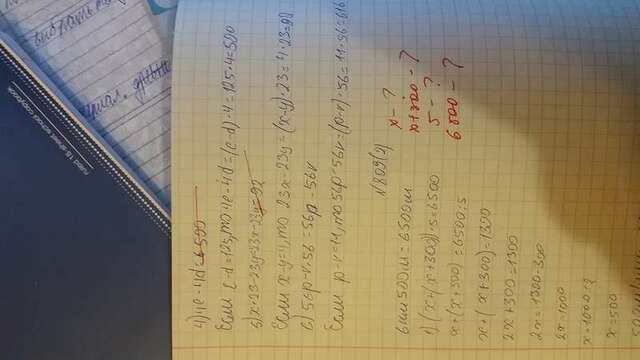 4) 4c-4d=500
Если c-d=125, то 4c-4d=(c-d)·4=125·4=500
5) x·23-23y=23x-23y=92
Если x-y=4, то 23x-23y=(x-y)·23=4·23=92
6) 56p-r·56=56p-56r
Если p-r=11, то 56p-56r=(p-r)·56=11·56=616
№809(2)
6км500м=6500м
x-?
x+300-?
5-?
6500-?
1) (x+(x+300))·5=6500
x+(x+300)=6500:5
x+(x+300)=1300
2x+300=1300
2x=1300-300
2x=1000
x=1000:2
x=500